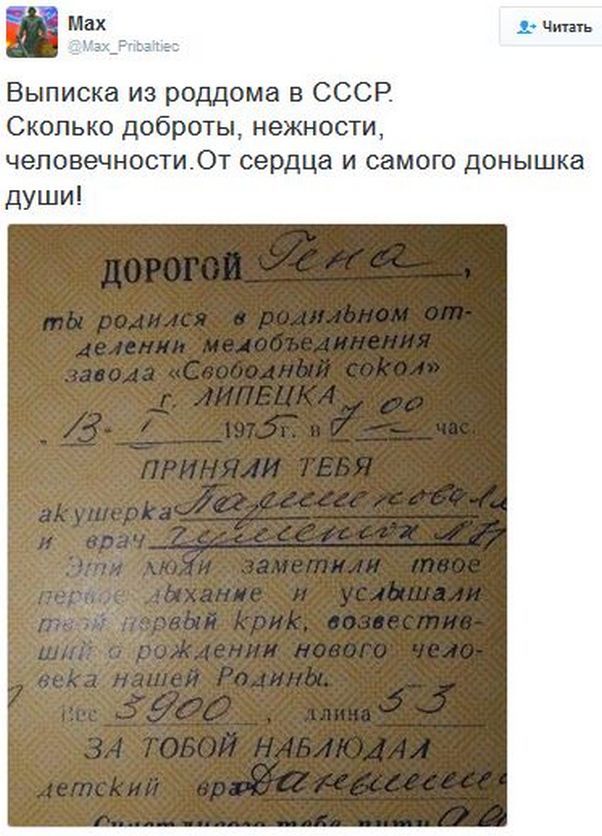 Max
@Max_Pribaltiec
Читать
Выписка из роддома в СССР.
Сколько доброты, нежности,
человечности.От сердца и самого донышка
души!
ДОРОГОЙ Гена,
ты родился в родильном от-
делении медобъединения
завода «Свободный сокол»
г. ЛИПЕЦКА
13 I 1975г. в 7 00 час.
ПРИНЯЛИ ТЕБЯ
акушерка
и врач
Эти люди заметили твое
первое дыхание и услышали
твой первый крик, возвестив-
ший о рождении нового чело-
века нашей Родины.
Вес 3900, длина 53
ЗА ТОБОЙ НАБЛЮДАЛ
детский врач
Счастливого тебе пути